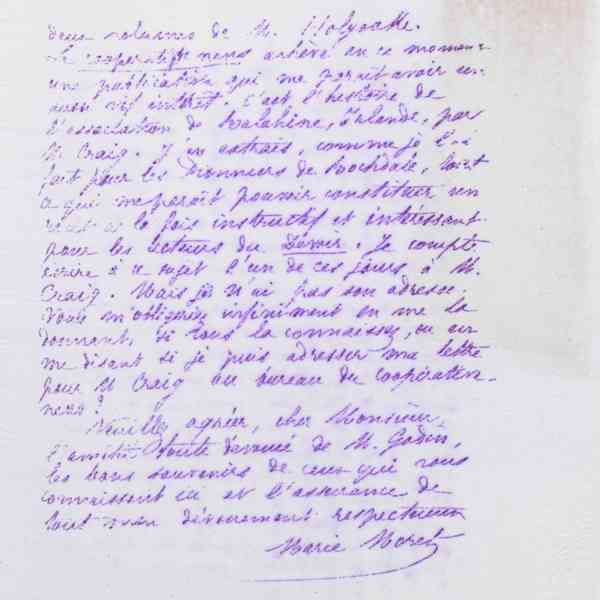 deux volumes de M. Holyoake.
Le cooperatif news achève en ce moment
une publication qui me paraît avoir un
aussi vif intérêt. C'est l'histoire de
l'association de Ralahine, Irlande, par
M. Craig. J'en extrais, comme je l'ai
fait pour les Pionniers de Rochdale, tout
ce qui me paraît pouvoir constituer un
récit à la fois instructif et intéressant
pour les lecteurs du Devoir. Je compte
écrire à ce sujet l'un de ces jours à M.
Craig. Mais je n'ai pas son adresse.
Vous m'obligeriez infiniment en me la
donnant, si vous la connaissez, ou en
me disant si je puis adresser ma lettre
pour M Craig au bureau du coopératen-
news?
Veuillez agréer, cher Monsieur,
l'amitié toute dévouée de M. Godin,
les bons souvenirs de ceux qui vous
connaissent ici et l'assurance de
tout mon dévouement respectueux
Marie Moret